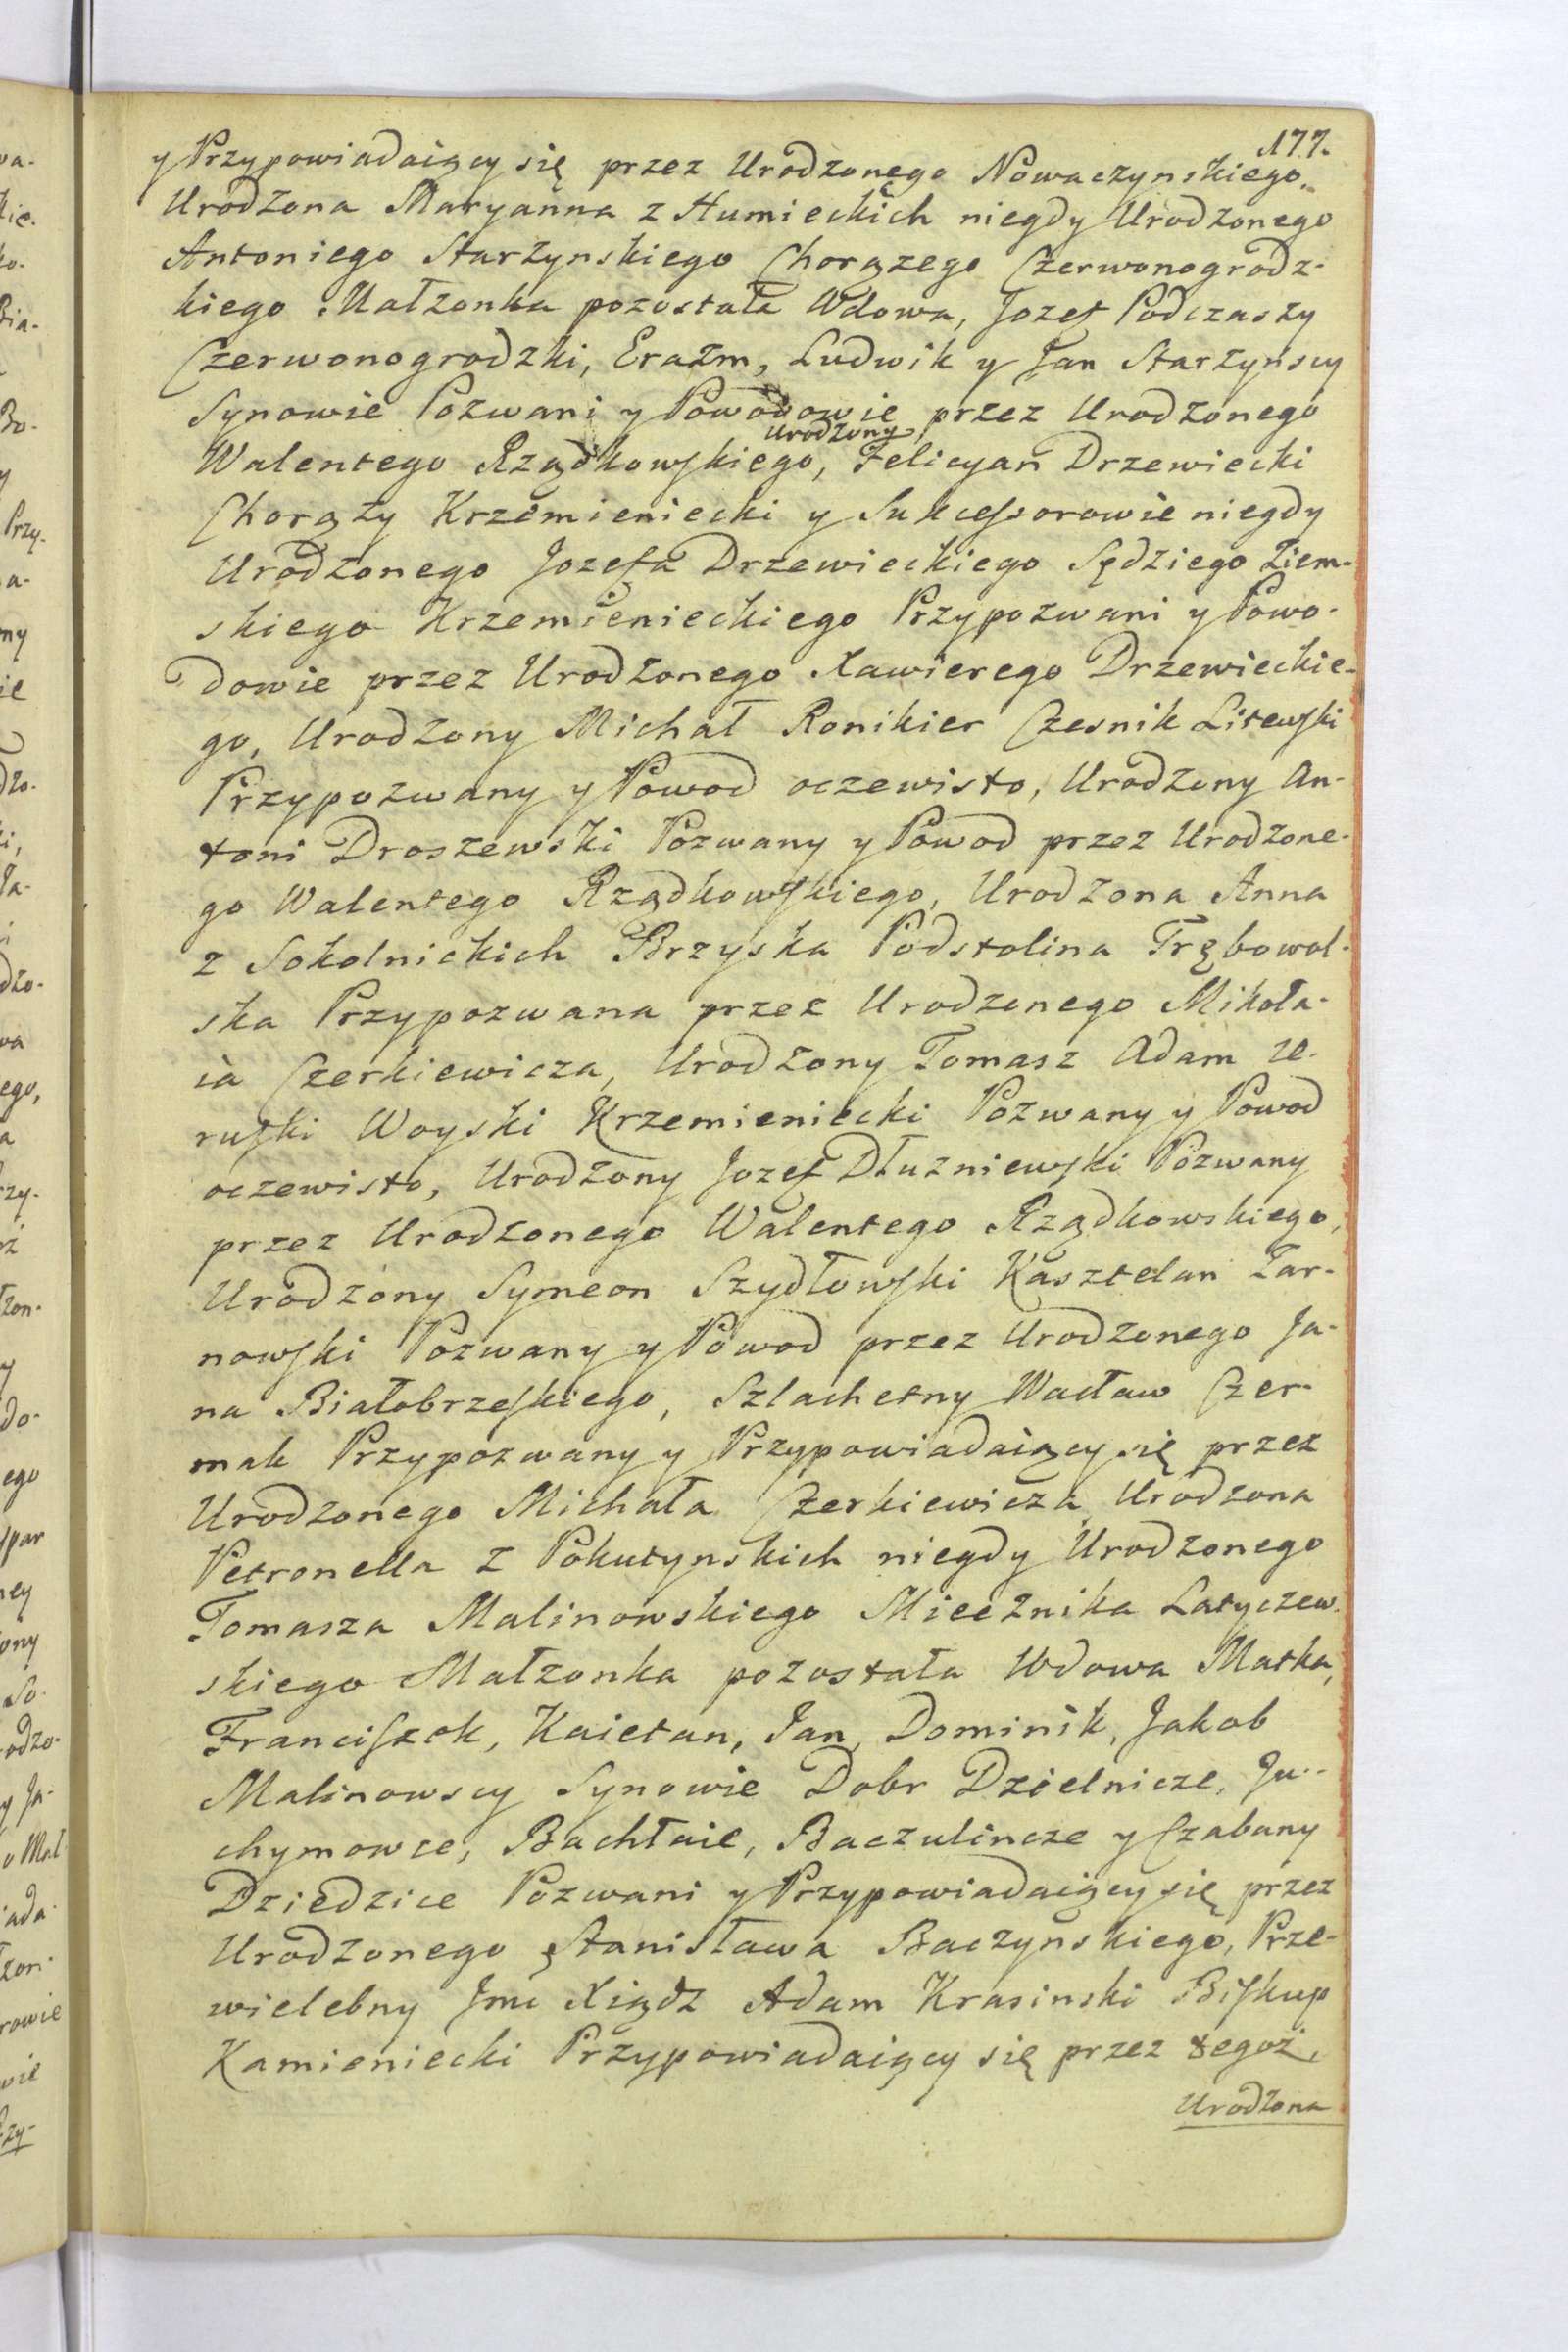 177.
y Przypowiadaiący się przez Urodzonego Nowaczynskiego.
Urodzona Maryanna z Humieckich niegdy Urodzonego
Antoniego Starzynskiego Chorązego Czerwonogrodz-
kiego Małzonka pozostała Wdowa, Jozef Podczaszy
Czerwonogrodzki, Erazm, Ludwik y Jan Starzynscy
Synowie Pozwani y Powodowie przez Urodzonego
Urodzony
Walentego Rządkowskiego, Felicyan Drzewiecki
Chorąży Krzemieniecki y Sukcessorowie niegdy
Urodzonego Jozefa Drzewieckiego Sędziego Ziem-
skiego Krzemienieckiego Przypozwani y Powo-
dowie przez Urodzonego Xawierego Drzewieckie-
go, Urodzony Michał Ronikier Czesnik Litewski
Przypozwany y Powod oczewisto, Urodzony An-
toni Droszewski Pozwany y Powod przez Urodzone-
go Walentego Rządkowskiego, Urodzona Anna
z Sokolnickich Brzyska Podstolina Trębowol-
ska Przypozwana przez Urodzonego Mikoła-
ia Czerkiewicza, Urodzony Tomasz Adam Ze-
ruski Woyski Krzemieniecki Pozwany y Powod
oczewisto, Urodzony Jozef Dłuzniewski Pozwany
przez Urodzonego Walentego Rządkowskiego,
Urodzony Symeon Szydłowski Kasztelan Żar-
nowski Pozwany y Powod przez Urodzonego Ja-
na Białobrzeskiego, Szlachetny Wacław Czer-
mak Przypozwany y Przypowiadaiący się przez
Urodzonego Michała Czerkiewicza Urodzona
Petronella z Pokutynskich niegdy Urodzonego
Tomasza Malinowskiego Miecznika Latyczew-
skiego Małzonka pozostała Wdowa Matka,
Franciszek, Kaietan, Jan, Dominik, Jakob
Malinowscy Synowie Dobr Dzielnicze, Ju-
chymowce, Bachłaie, Baczulincze y Czabany
Dziedzice Pozwani y Przypowiadaiący się przez
Urodzonego Stanisława Baczynskiego, Prze-
wielebny Jmc Xiądz Adam Krasinski Biskup
Kamieniecki Przypowiadaiący się przez tegoż,
Urodzona